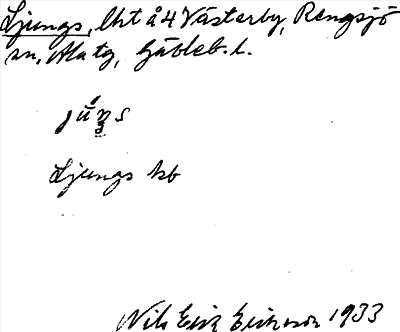 Ljungs, lht å 4 Västerby, Rengsjö
sn, Ala tg, Gävleb. l.
Ljungs kb
Nils Erik Erikson 1933